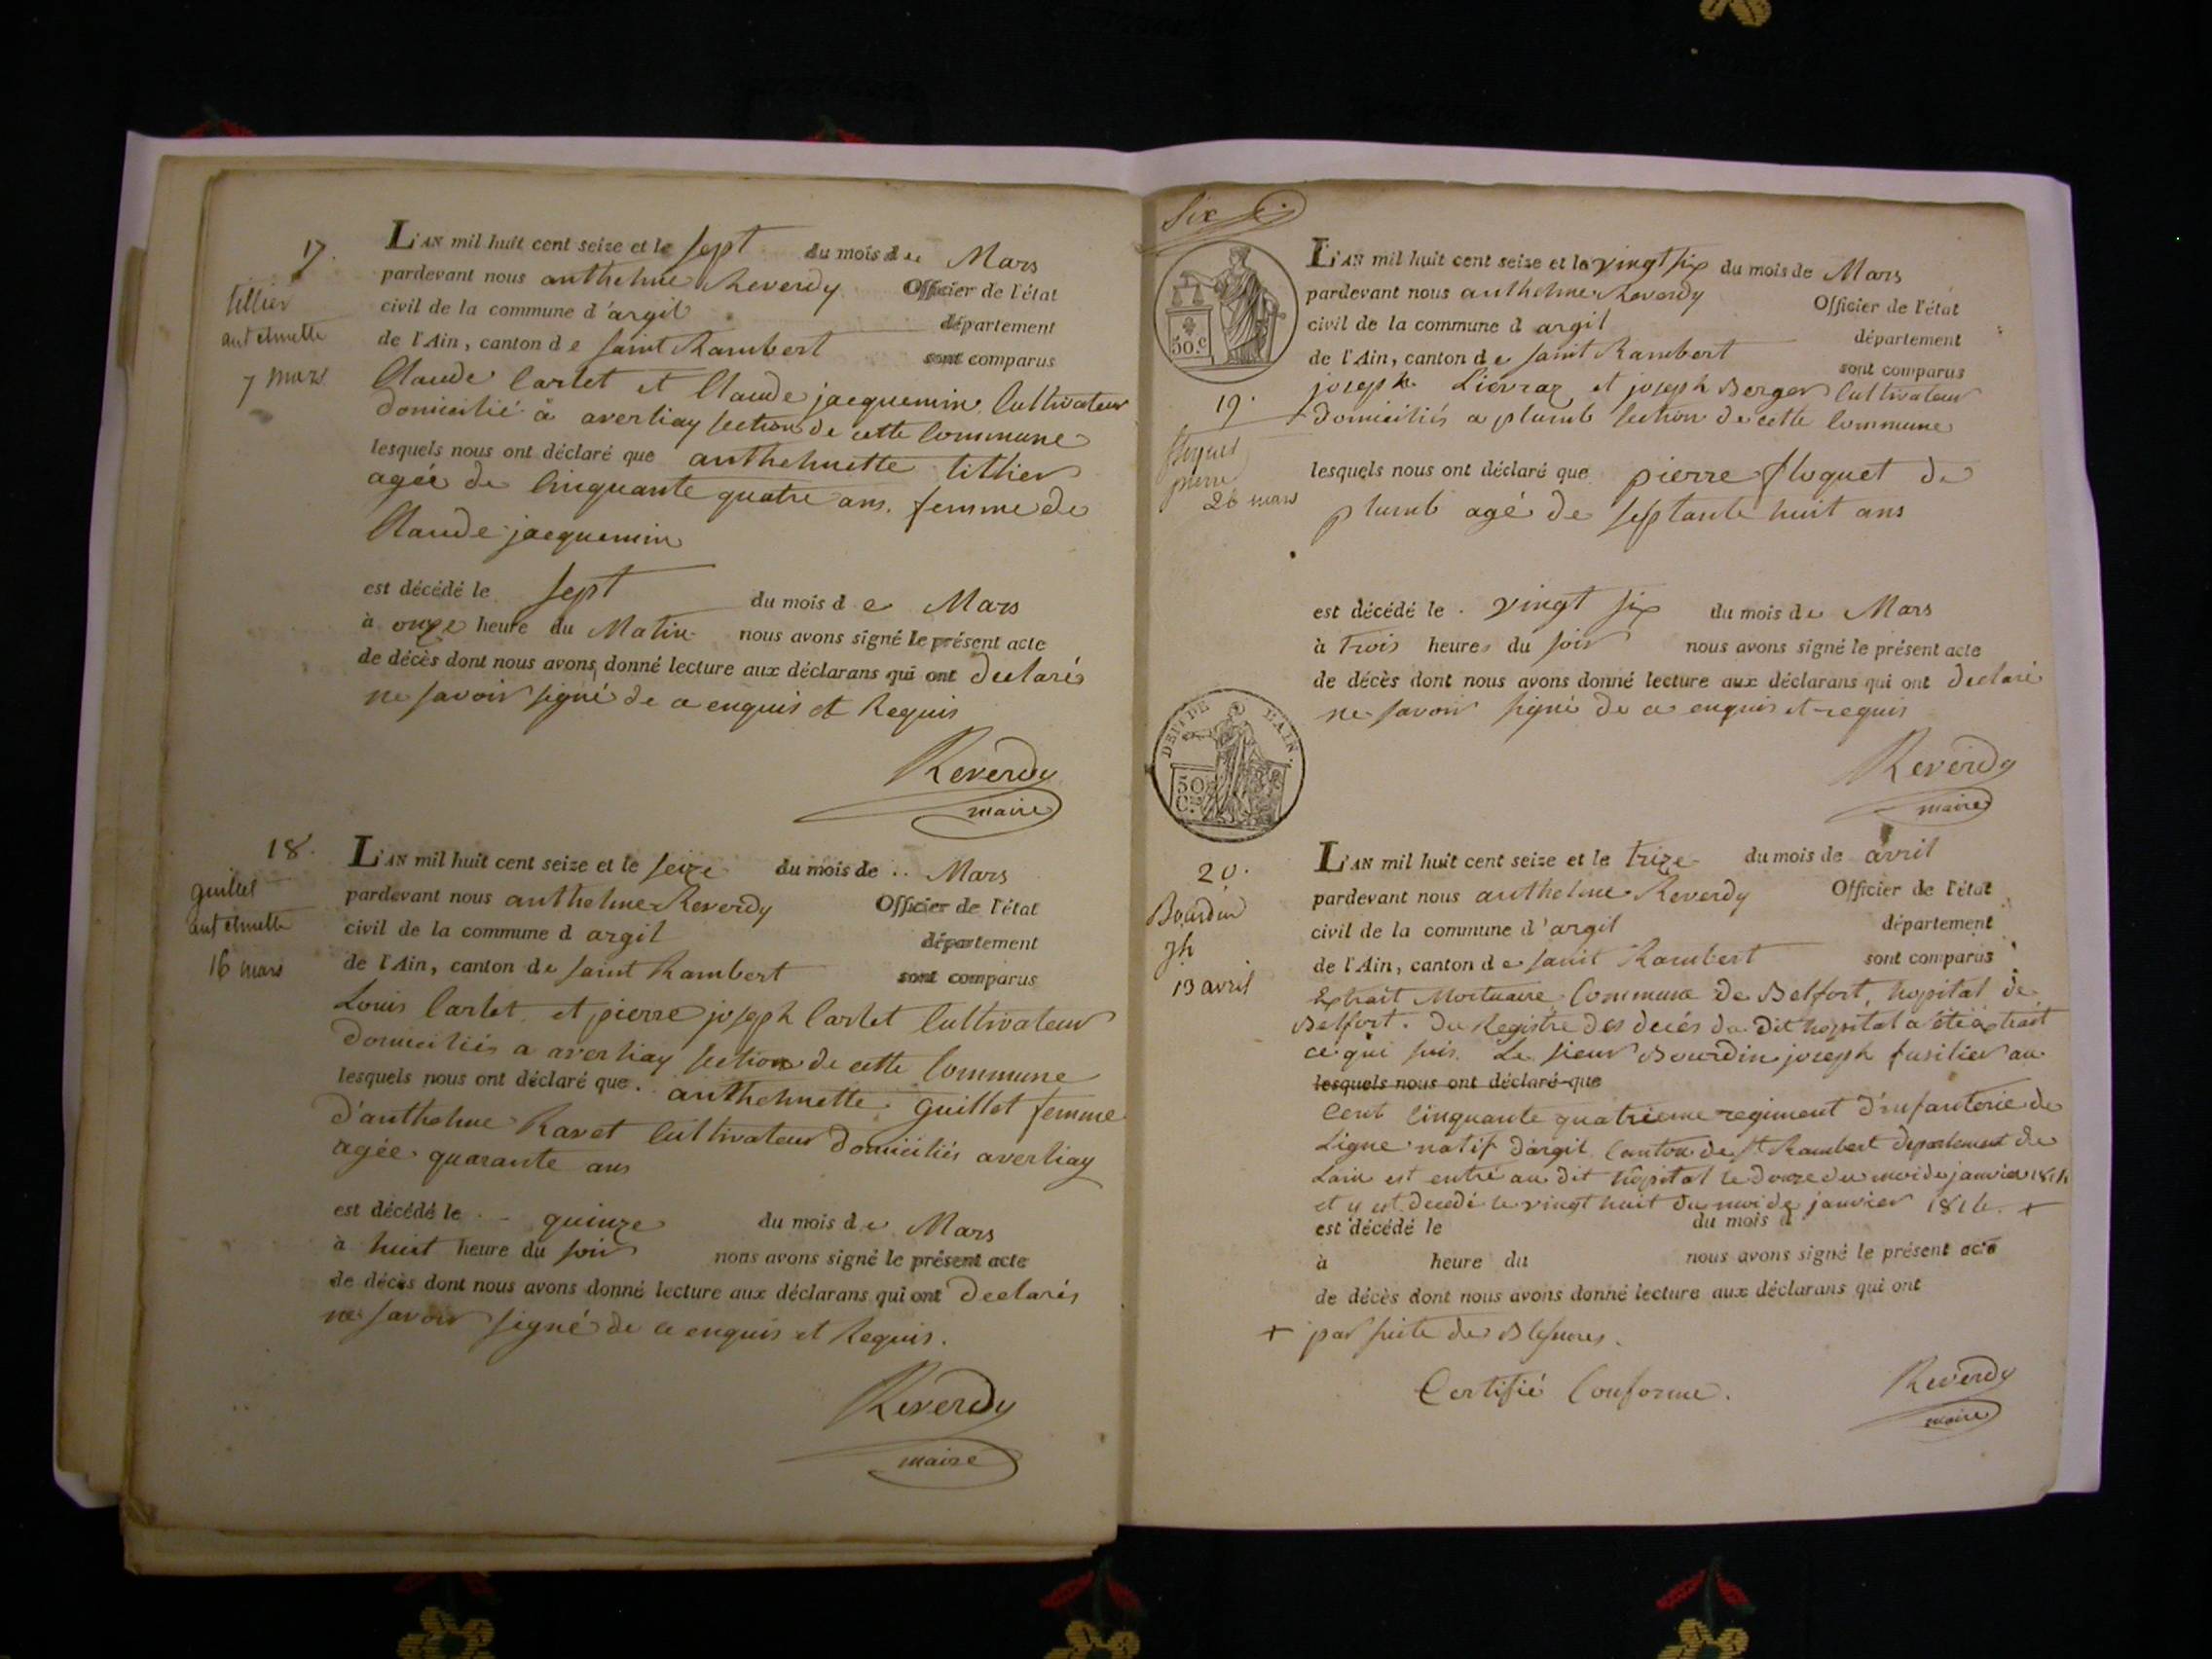 17.
tillier
antelmette
7 mars
L'AN mil huit cent seize et le sept du mois de Mars
pardevant nous anthelme Reverdy Officier de l'état
civil de la commune d'argil département
de l'Ain, canton de saint Rambert sont comparus
Claude Carlet et Claude jacquemin Cultivateur
domicilié à averliay section de cette Commune
lesquels nous ont déclaré que anthelmette tillier
agée de Cinquante quatre ans. femme de
Claude jacquemin
est décédé le sept du mois de Mars
à onze heure du Matin nous avons signé le présent acte
de décès dont nous avons donné lecture aux déclarans qui ont declarés
ne savoir signé de ce enquis et Requis
Reverdy
maire
18.
guillet
antelmette
16 mars
L'AN mil huit cent seize et le seize du mois de Mars
pardevant nous anthelme Reverdy Officier de l'état
civil de la commune d argil département
de l'Ain, canton de saint Rambert sont comparus
Louis Carlet et pierre joseph Carlet Cultivateur
domiciliés a averliay section de cette Commune
lesquels nous ont déclaré que anthelmette Guillet femme
d'anthelme Ravet Cultivateur domiciliés averliay
agée quarante ans
est décédé le quinze du mois de Mars
à huit heure du soir nous avons signé le présent acte
de décès dont nous avons donné lecture aux déclarans qui ont declarés
ne savoir signé de ce enquis et Requis.
Reverdy
maire
Six
50.c
L'AN mil huit cent seize et le vingt six du mois de Mars
pardevant nous anthelme Reverdy Officier de l'état
civil de la commune d argil département
de l'Ain, canton de saint Rambert sont comparus
19.
joseph Lievraz et joseph Berger Cultivateur
domiciliés a plumb section de cette Commune
pierre
26 mars
lesquels nous ont déclaré que pierre floquet de
plumb agé de septante huit ans
est décédé le vingt six du mois de Mars
à trois heures du soir nous avons signé le présent acte
de décès dont nous avons donné lecture aux déclarans qui ont declaré
ne savoir signé de ce enquis et requis
DEPT DE L'AIN.
50 C.
Reverdy
maire
20.
Bourdin
Jh
13 avril
L'AN mil huit cent seize et le trize du mois de avril
pardevant nous anthelme Reverdy Officier de l'état
civil de la commune d'argil département
de l'Ain, canton de saint Rambert sont comparus
Extrait Mortuaire Commune de Belfort, hopital de
Belfort. du Registre des decés du dit hopital a été extrait
ce qui suis. Le sieur Bourdin joseph fusilier au
lesquels nous ont déclaré que
Cent Cinquante quatrieme regiment d'infanterie de
Ligne natif d'argil Canton de St Rambert departement de
Lain est entré au dit hôpital le douze du moi de janvier 1814
et y est decedé le vingt huit du moi de janvier 1814. +
est décédé le du mois d
à heure du nous avons signé le présent acte
de décès dont nous avons donné lecture aux déclarans qui ont
+ par suite de Blesures.
Certifié Conforme.
Reverdy
maire